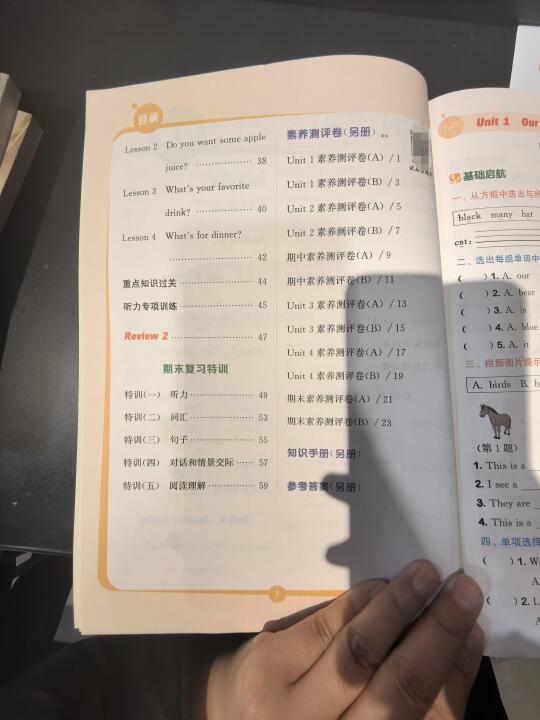 目录
Lesson 2 Do you want some apple
juice? ………………… 38
Lesson 3 What's your favorite
drink? ………………… 40
Lesson 4 What's for dinner?
………………………… 42
重点知识过关 ……………………… 44
听力专项训练 ……………………… 45
Review 2 ………………………… 47
期末复习特训
特训(一) 听力 …………………… 49
特训(二) 词汇 …………………… 53
特训(三) 句子 …………………… 55
特训(四) 对话和情景交际 …… 57
特训(五) 阅读理解 …………… 59
素养测评卷(另册)
Unit 1 素养测评卷(A) / 1
Unit 1 素养测评卷(B) / 3
Unit 2 素养测评卷(A) / 5
Unit 2 素养测评卷(B) / 7
期中素养测评卷(A) / 9
期中素养测评卷(B) / 11
Unit 3 素养测评卷(A) / 13
Unit 3 素养测评卷(B) / 15
Unit 4 素养测评卷(A) / 17
Unit 4 素养测评卷(B) / 19
期末素养测评卷(A) / 21
期末素养测评卷(B) / 23
知识手册(另册)
参考答案(另册)
2
Unit 1 Our
基础启航
一、从方框中选出与
black many hat
cat:
二、选出每组单词中
( ) 1. A. our
( ) 2. A. bear
( ) 3. A. is
( ) 4. A. blue
( ) 5. A. it
三、根据图片提示
A. birds B.
(第1题)
1. This is a
2. I see a
3. They are
4. This is a
四、单项选择
( ) 1.
A
( ) 2.
A